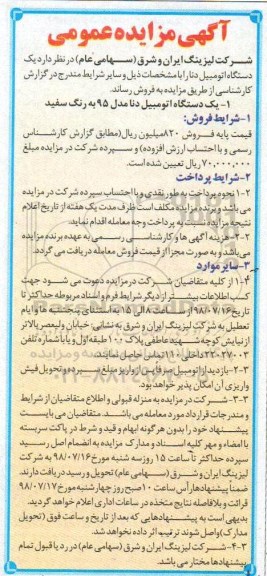 آگهی مزایده عمومی
شرکت لیزینگ ایران و شرق (سهامی عام) در نظر دارد یک
دستگاه اتومبیل دنا را با مشخصات ذیل و سایر شرایط مندرج در گزارش
کارشناسی از طریق مزایده به فروش رساند.
۱- یک دستگاه اتومبیل دنا مدل ۹۵ به رنگ سفید
۱-شرایط فروش:
قیمت پایه فروش ۸۲۰میلیون ریال(مطابق گزارش کارشناس
رسمی و با احتساب ارزش افزوده) و سپرده شرکت در مزایده مبلغ
۷۰,۰۰۰,۰۰۰ ریال تعیین شده است.
۲-شرایط پرداخت
۲-۱ نحوه پرداخت به طور نقدی و با احتساب سپرده شرکت در مزایده
می باشد و برنده مزایده مکلف است ظرف مدت یک هفته از تاریخ اعلام
نتیجه مزایده نسبت به پرداخت وجه معامله اقدام نماید.
۲-۲ هزینه آگهی ها و کارشناسی رسمی به عهده برنده مزایده
می باشد و به صورت مجزا از قیمت فروش معامله دریافت می گردد.
۳-سایر موارد
۳-۱ از کلیه متقاضیان شرکت در مزایده دعوت می شود جهت
کسب اطلاعات بیشتر از دیگر شرایط فرم و اسناد مربوطه حداکثر تا
تاریخ ۹۸/۰۷/۱۶ از ساعت ۸ الی ۱۵ به استثنای پنج شنبه ها و ایام
تعطیل به شرکت لیزینگ ایران و شرق به نشانی: خیابان ولیعصر بالاتر
از نیایش کوچه شهید عاطفی پلاک ۱۰۰ طبقه اول و یا با شماره تلفن
۲۲۰۲۷۰۰۳ داخلی ۱۱۰ تماس حاصل نمایند.
۳-۲-بازدید از اتومبیل صرفا پس از واریز مبلغ سپرده و تحویل فیش
واریزی آن امکان پذیر خواهد بود.
۳-۳-شرکت در مزایده به منزله قبولی و اطلاع متقاضیان از شرایط
و مندرجات قرارداد مورد معامله می باشد. متقاضیان می بایست
پیشنهاد خود را بدون هرگونه ابهام و قید و شرط در پاکت سربسته
با امضاء و مهر کلیه اسناد و مدارک مزایده به انضمام اصل رسید
سپرده حداکثر تا ساعت ۱۵ روز سه شنبه مورخ ۹۸/۰۷/۱۶ به شرکت
لیزینگ ایران و شرق (سهامی عام) تحویل و رسید دریافت دارند.
ضمناً پیشنهادها رأس ساعت ۱۰ صبح روز چهارشنبه مورخ ۹۸/۰۷/۱۷
قرائت و بلافاصله نتایج متخذه در ساعات اداری اعلام خواهد گردید.
بدیهی است به پیشنهادهایی که بعد از تاریخ و ساعت فوق (تحویل
مدارک)واصل شوند ترتیب اثر داده نخواهد شد.
۳-۴-شرکت لیزینگ ایران و شرق (سهامی عام) در رد یا قبول تمام
پیشنهادها مختار می باشد.